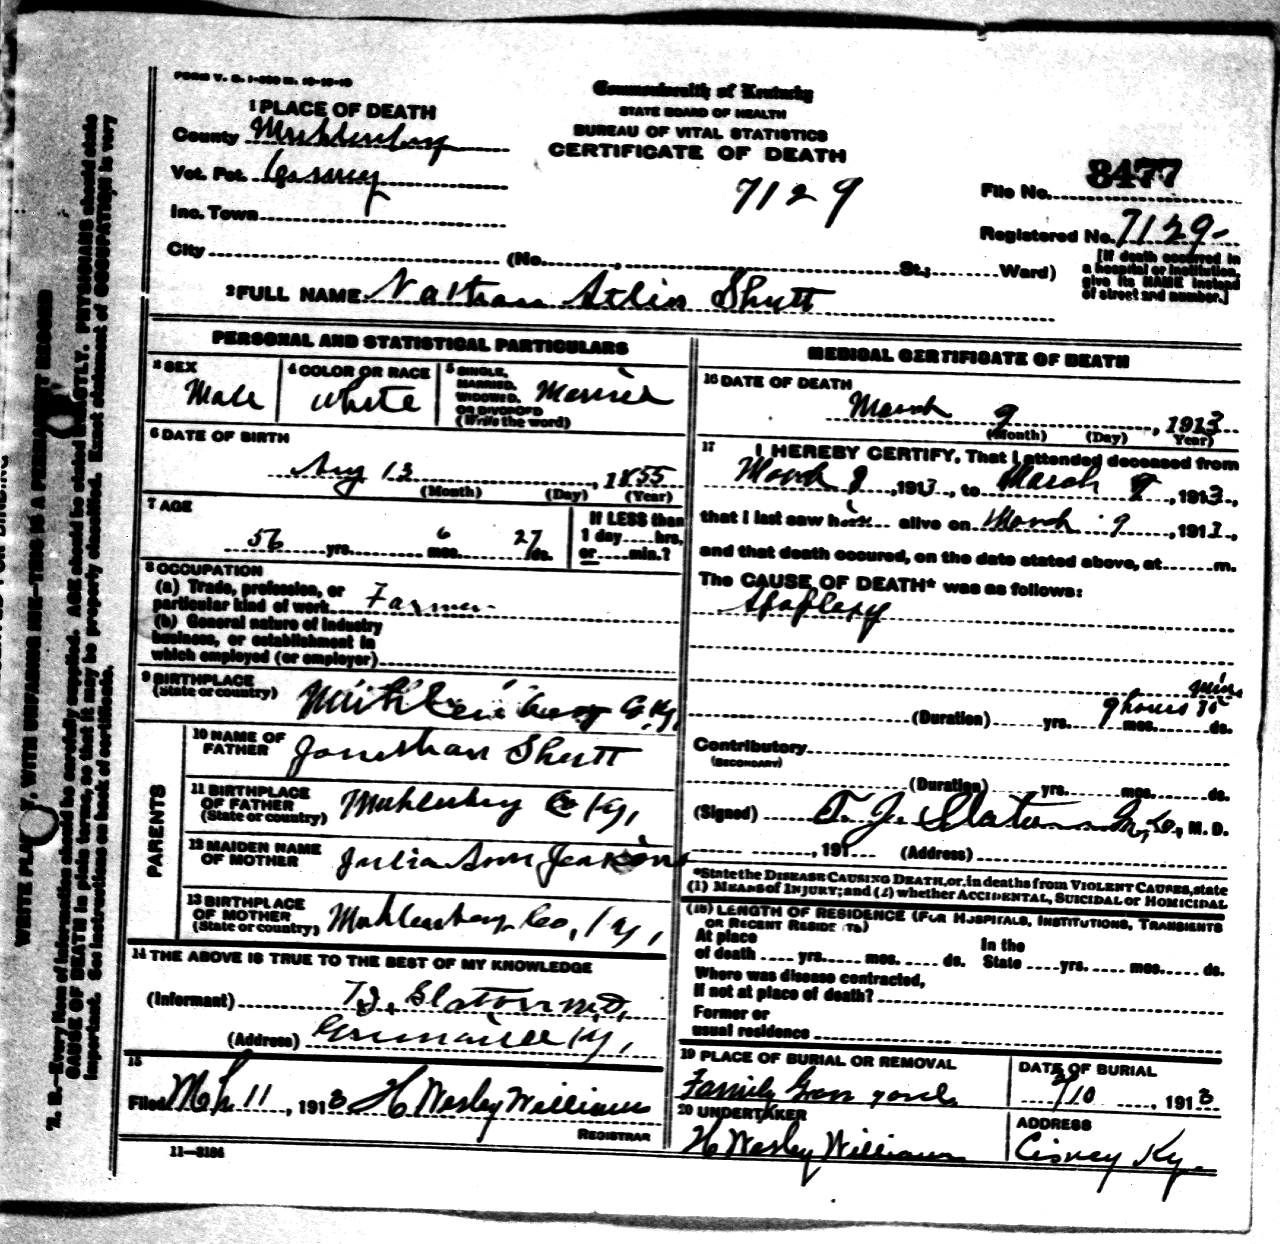 FORM V. S. 1-
Commonwealth of Kentucky
STATE BOARD OF HEALTH
BUREAU OF VITAL STATISTICS
CERTIFICATE OF DEATH
1 PLACE OF DEATH
County Muhlenberg
Vot. Pct. Cisney
Inc. Town
City (No. , St.; Ward)
7129
File No. 8477
Registered No. 7129-
[If death occurred in
a hospital or institution,
give its NAME instead
of street and number.]
2 FULL NAME Nathan Shutt
PERSONAL AND STATISTICAL PARTICULARS
3 SEX
Male
4 COLOR OR RACE
White
5 SINGLE,
MARRIED,
WIDOWED,
OR DIVORCED
(Write the word)
Married
6 DATE OF BIRTH
Aug 12, 1855
(Month) (Day) (Year)
7 AGE
56 yrs. 6 mos. 27 ds.
If LESS than
1 day hrs.
or min.?
8 OCCUPATION
(a) Trade, profession, or
particular kind of work Farmer
(b) General nature of industry
business, or establishment in
which employed (or employer)
9 BIRTHPLACE
(State or country) Muhlenberg Co Ky.
PARENTS
10 NAME OF
FATHER Jonathan Shutt
11 BIRTHPLACE
OF FATHER
(State or country) Muhlenberg Co Ky,
12 MAIDEN NAME
OF MOTHER Julia Ann Jenkins
13 BIRTHPLACE
OF MOTHER
(State or country) Muhlenberg Co, Ky,
14 THE ABOVE IS TRUE TO THE BEST OF MY KNOWLEDGE
(Informant) T.J. Slaton M.D.
(Address) Greenville Ky,
15
Filed Mch 11, 1913 H Wesley Williams
REGISTRAR
11-3184
MEDICAL CERTIFICATE OF DEATH
16 DATE OF DEATH
March 9, 1913
(Month) (Day) Year)
17 I HEREBY CERTIFY, That I attended deceased from
March 9, 1913, to March 9, 1913,
that I last saw him alive on March 9, 1913,
and that death occured, on the date stated above, at m.
The CAUSE OF DEATH* was as follows:
Apoplexy
mins
(Duration) yrs. 9 hours mos. ds.
Contributory
(SECONDARY)
(Duration) yrs. mos. ds.
(Signed) T. J. Slaton , M. D.
, 191 (Address)
*State the DISEASE CAUSING DEATH, or, in deaths from VIOLENT CAUSES, state
(1) MEANS of INJURY; and (2) whether ACCIDENTAL, SUICIDAL or HOMICIDAL
(18) LENGTH OF RESIDENCE (FOR HOSPITALS, INSTITUTIONS, TRANSIENTS
OR RECENT RESIDE TS)
At place
of death yrs. mos. ds.
In the
State yrs. mos. ds.
Where was disease contracted,
If not at place of death?
Former or
usual residence
19 PLACE OF BURIAL OR REMOVAL
Family Grave yard
DATE OF BURIAL
3/10, 1913
20 UNDERTAKER
H Wesley Williams
ADDRESS
Cisney Ky.
WRITE PLAINLY, WITH UNFADING INK—THIS IS A PERMANENT RECORD
N. B.—Every item of information should be carefully supplied. AGE should be stated EXACTLY. PHYSICIANS should state
CAUSE OF DEATH in plain terms, so that it may be properly classified. Exact statement of OCCUPATION is very
important. See instructions on back of certificate.